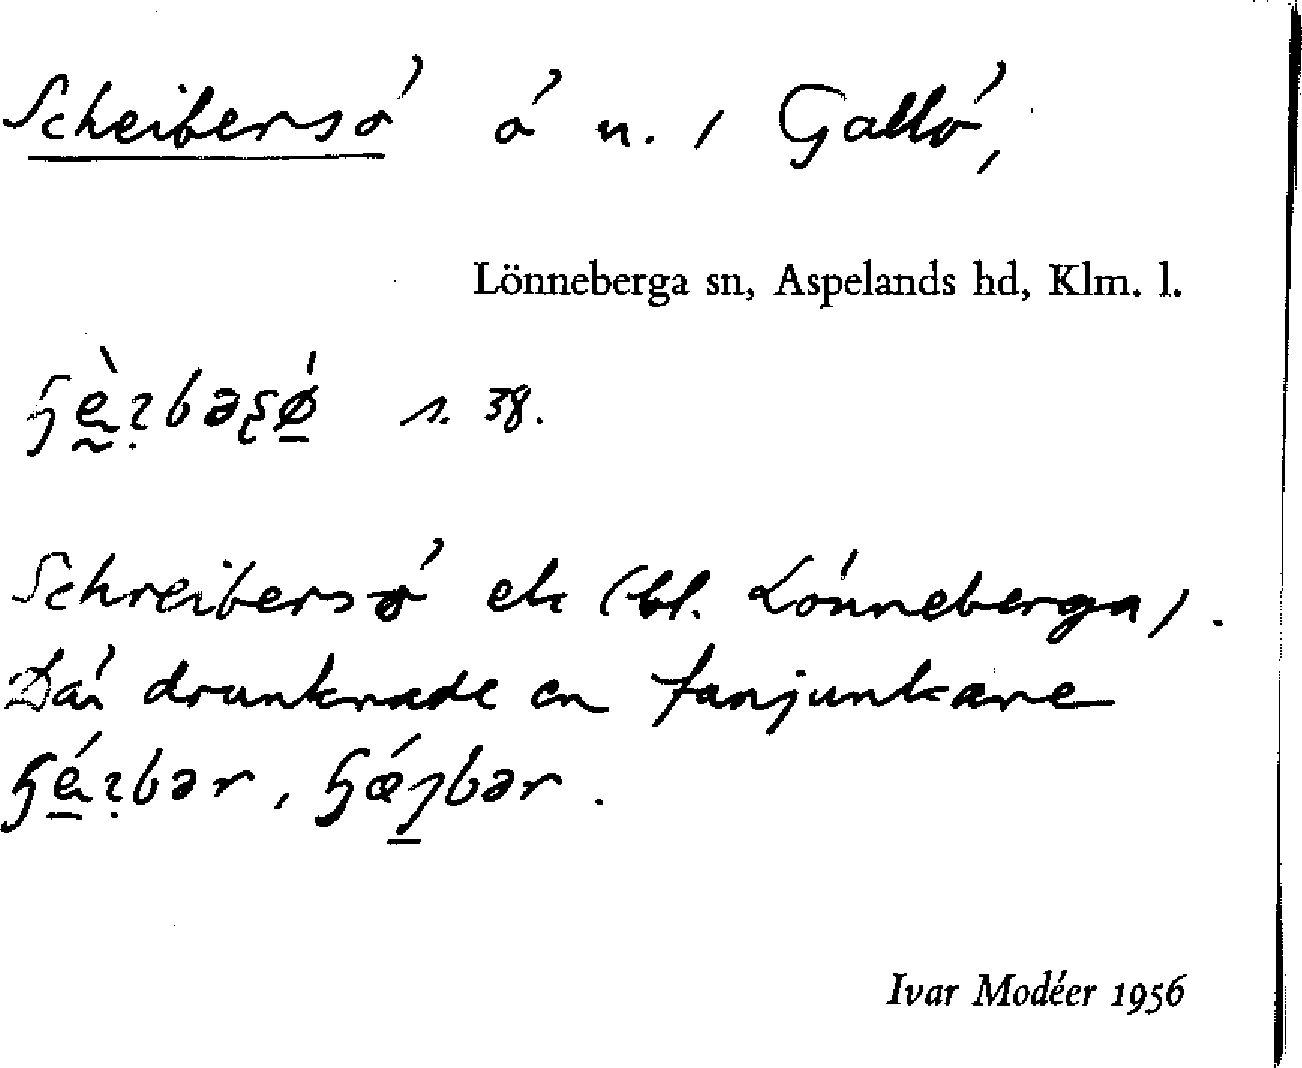 Scheibersö ö n. / Gallö,
Lönneberga sn, Aspelands hd, Klm. l.
s. 38.
Schreibersö ek (bl. Lönneberga).
Där drunknade en fanjunkare
Ivar Modéer 1956